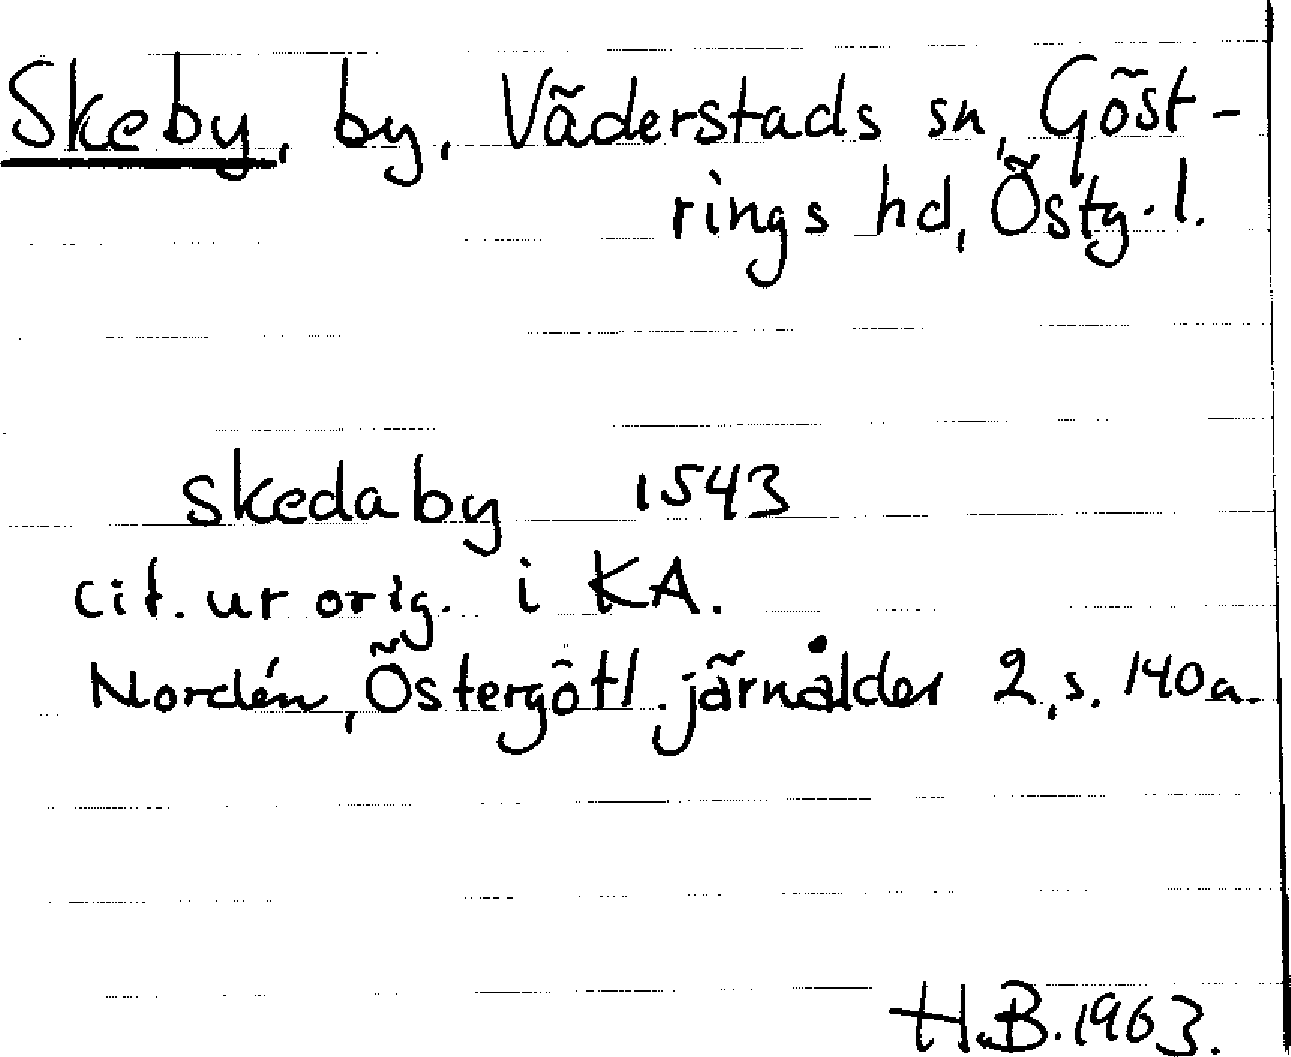 Skeby, by, Väderstads sn, Göst-
rings hd, Östg.l.
skedaby 1543
cit. ur orig. i KA.
Nordén, Östergötl. järnålder 2, s. 140a.
H.B. 1963.